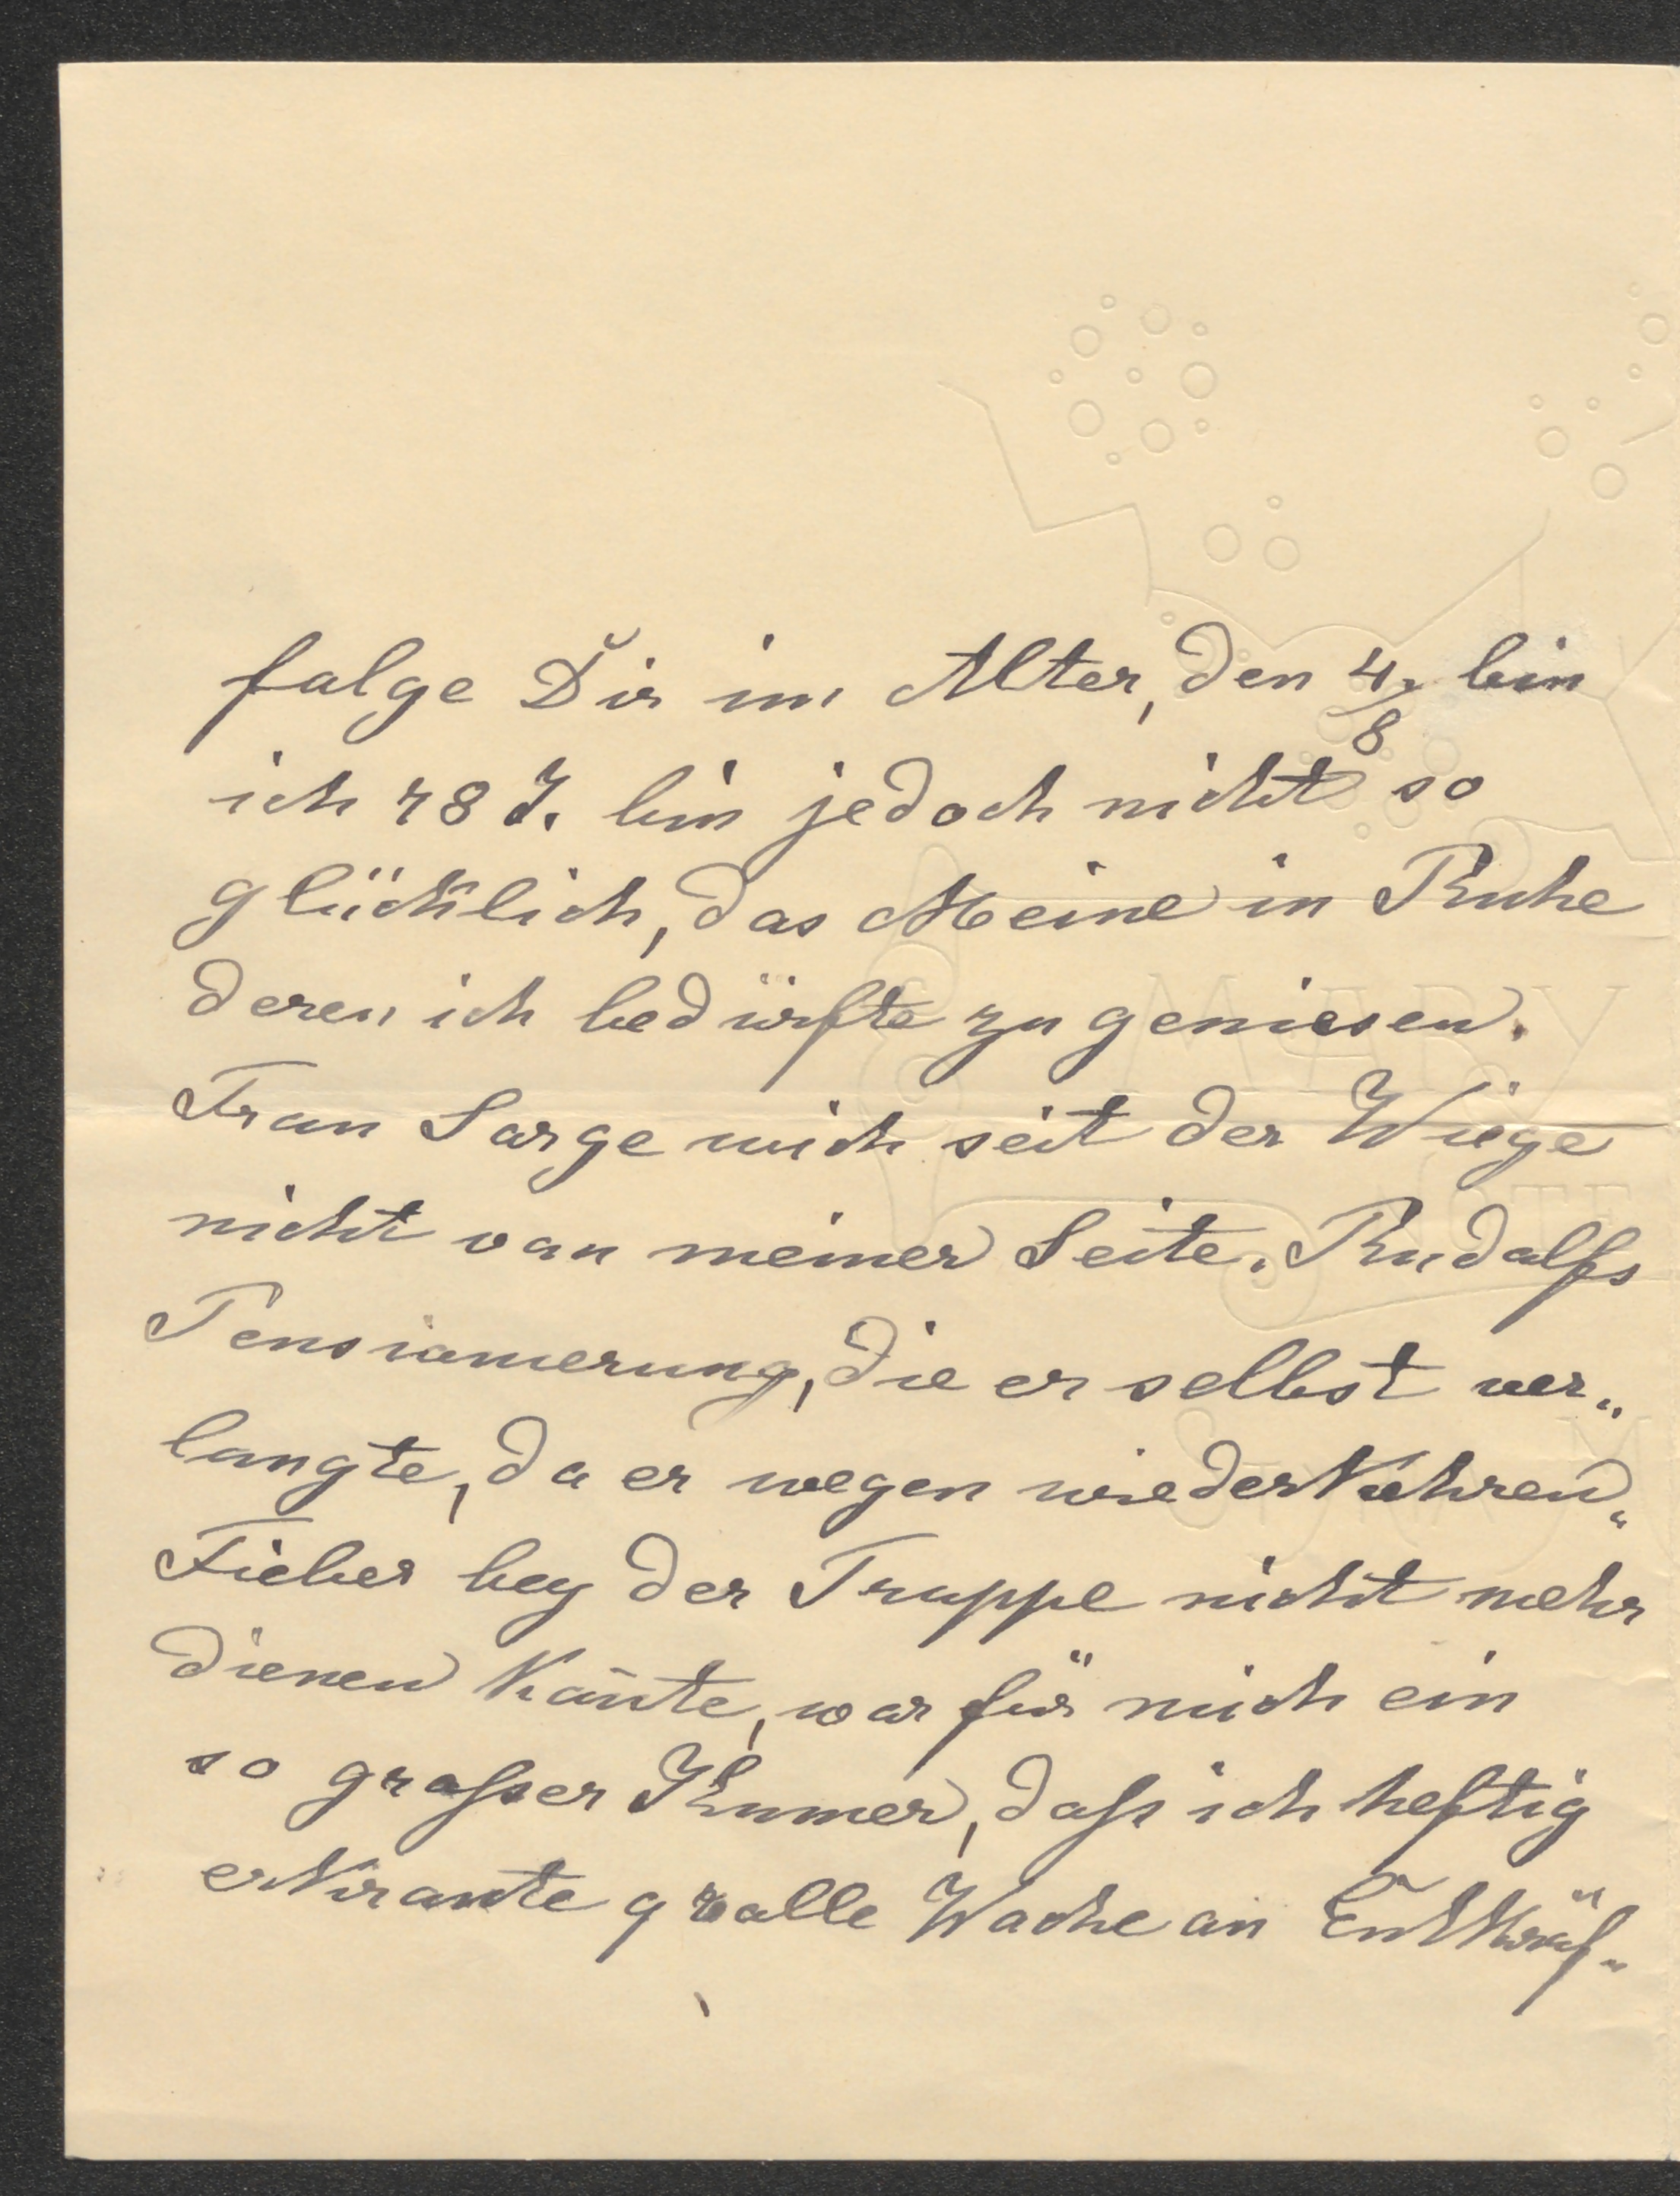 folge Dir im Alter, den 4/8 bin
ich 78 J. bin jedoch nicht so
glücklich, das Meine in Ruhe
deren ich bedürfte zu geniesen.
Frau Sorge wich seit der Wiege
nicht von meiner Seite. Rudolfs
Pensionierung, die er selbst ver„
langte, da er wegen wiederkehrend„
Fieber bey der Truppe nicht mehr
dienen kon̄te, war für mich ein
so grosser Kummer, dass ich heftig
erkrankte 9 volle Woche an Entkräf„
MARY
NOTE